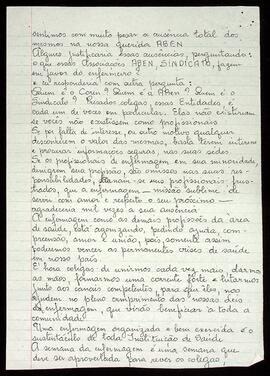 sentimos com muito pesar a ausência total dos
mesmos na nossa querida ABEN
Alguns justificaria essas ausências, perguntando:
o que essas Associações ABEN, SINDICATO, fazem
em favor do enfermeiro?
e eu responderia com outra pergunta:
Quem é o Coren? Quem é a ABen? Quem é o
Sindicato? Prezados colegas, essas Entidades, é
cada um de voces em particular. Elas não existiriam
se vocês não existissem como profissionais.
Se por falta de interesse, ou outro motivo qualquer
desconhecem o valor das mesmas, basta terem interesse
e procurar informações seguras, nas suas sedes.
Se os profissionais de enfermagem em sua minoridade,
denigrem sua profissão, são omissos nas suas res-
ponsabilidades, tornam-se uns profissionais frus-
trados, que a enfermagem — missão sublime de
servir com amor e respeito o seu próximo —
agradeceria mil vezes a sua ausência.
A enfermagem como as demais profissões da área
de saúde, está agonizando, pedindo ajuda, com-
preensão, amor e união, pois somente assim
poderemos vencer as permanentes crises de saúde
em nosso país.
É hora colegas de unirmos cada vez mais, darmos
as mãos, formarmos uma corrente forte e lutarmos
junto aos canais competentes, para que eles, nos
ajudem no pleno cumprimento das nossas leis
de enfermagem, que virão beneficiar à toda a
comunidade.
Uma enfermagem organizada e bem exercida é o
sustentáculo de toda Instituição de Saúde
A semana da enfermagem é uma semana que
deve ser aproveitada para rever os colegas,